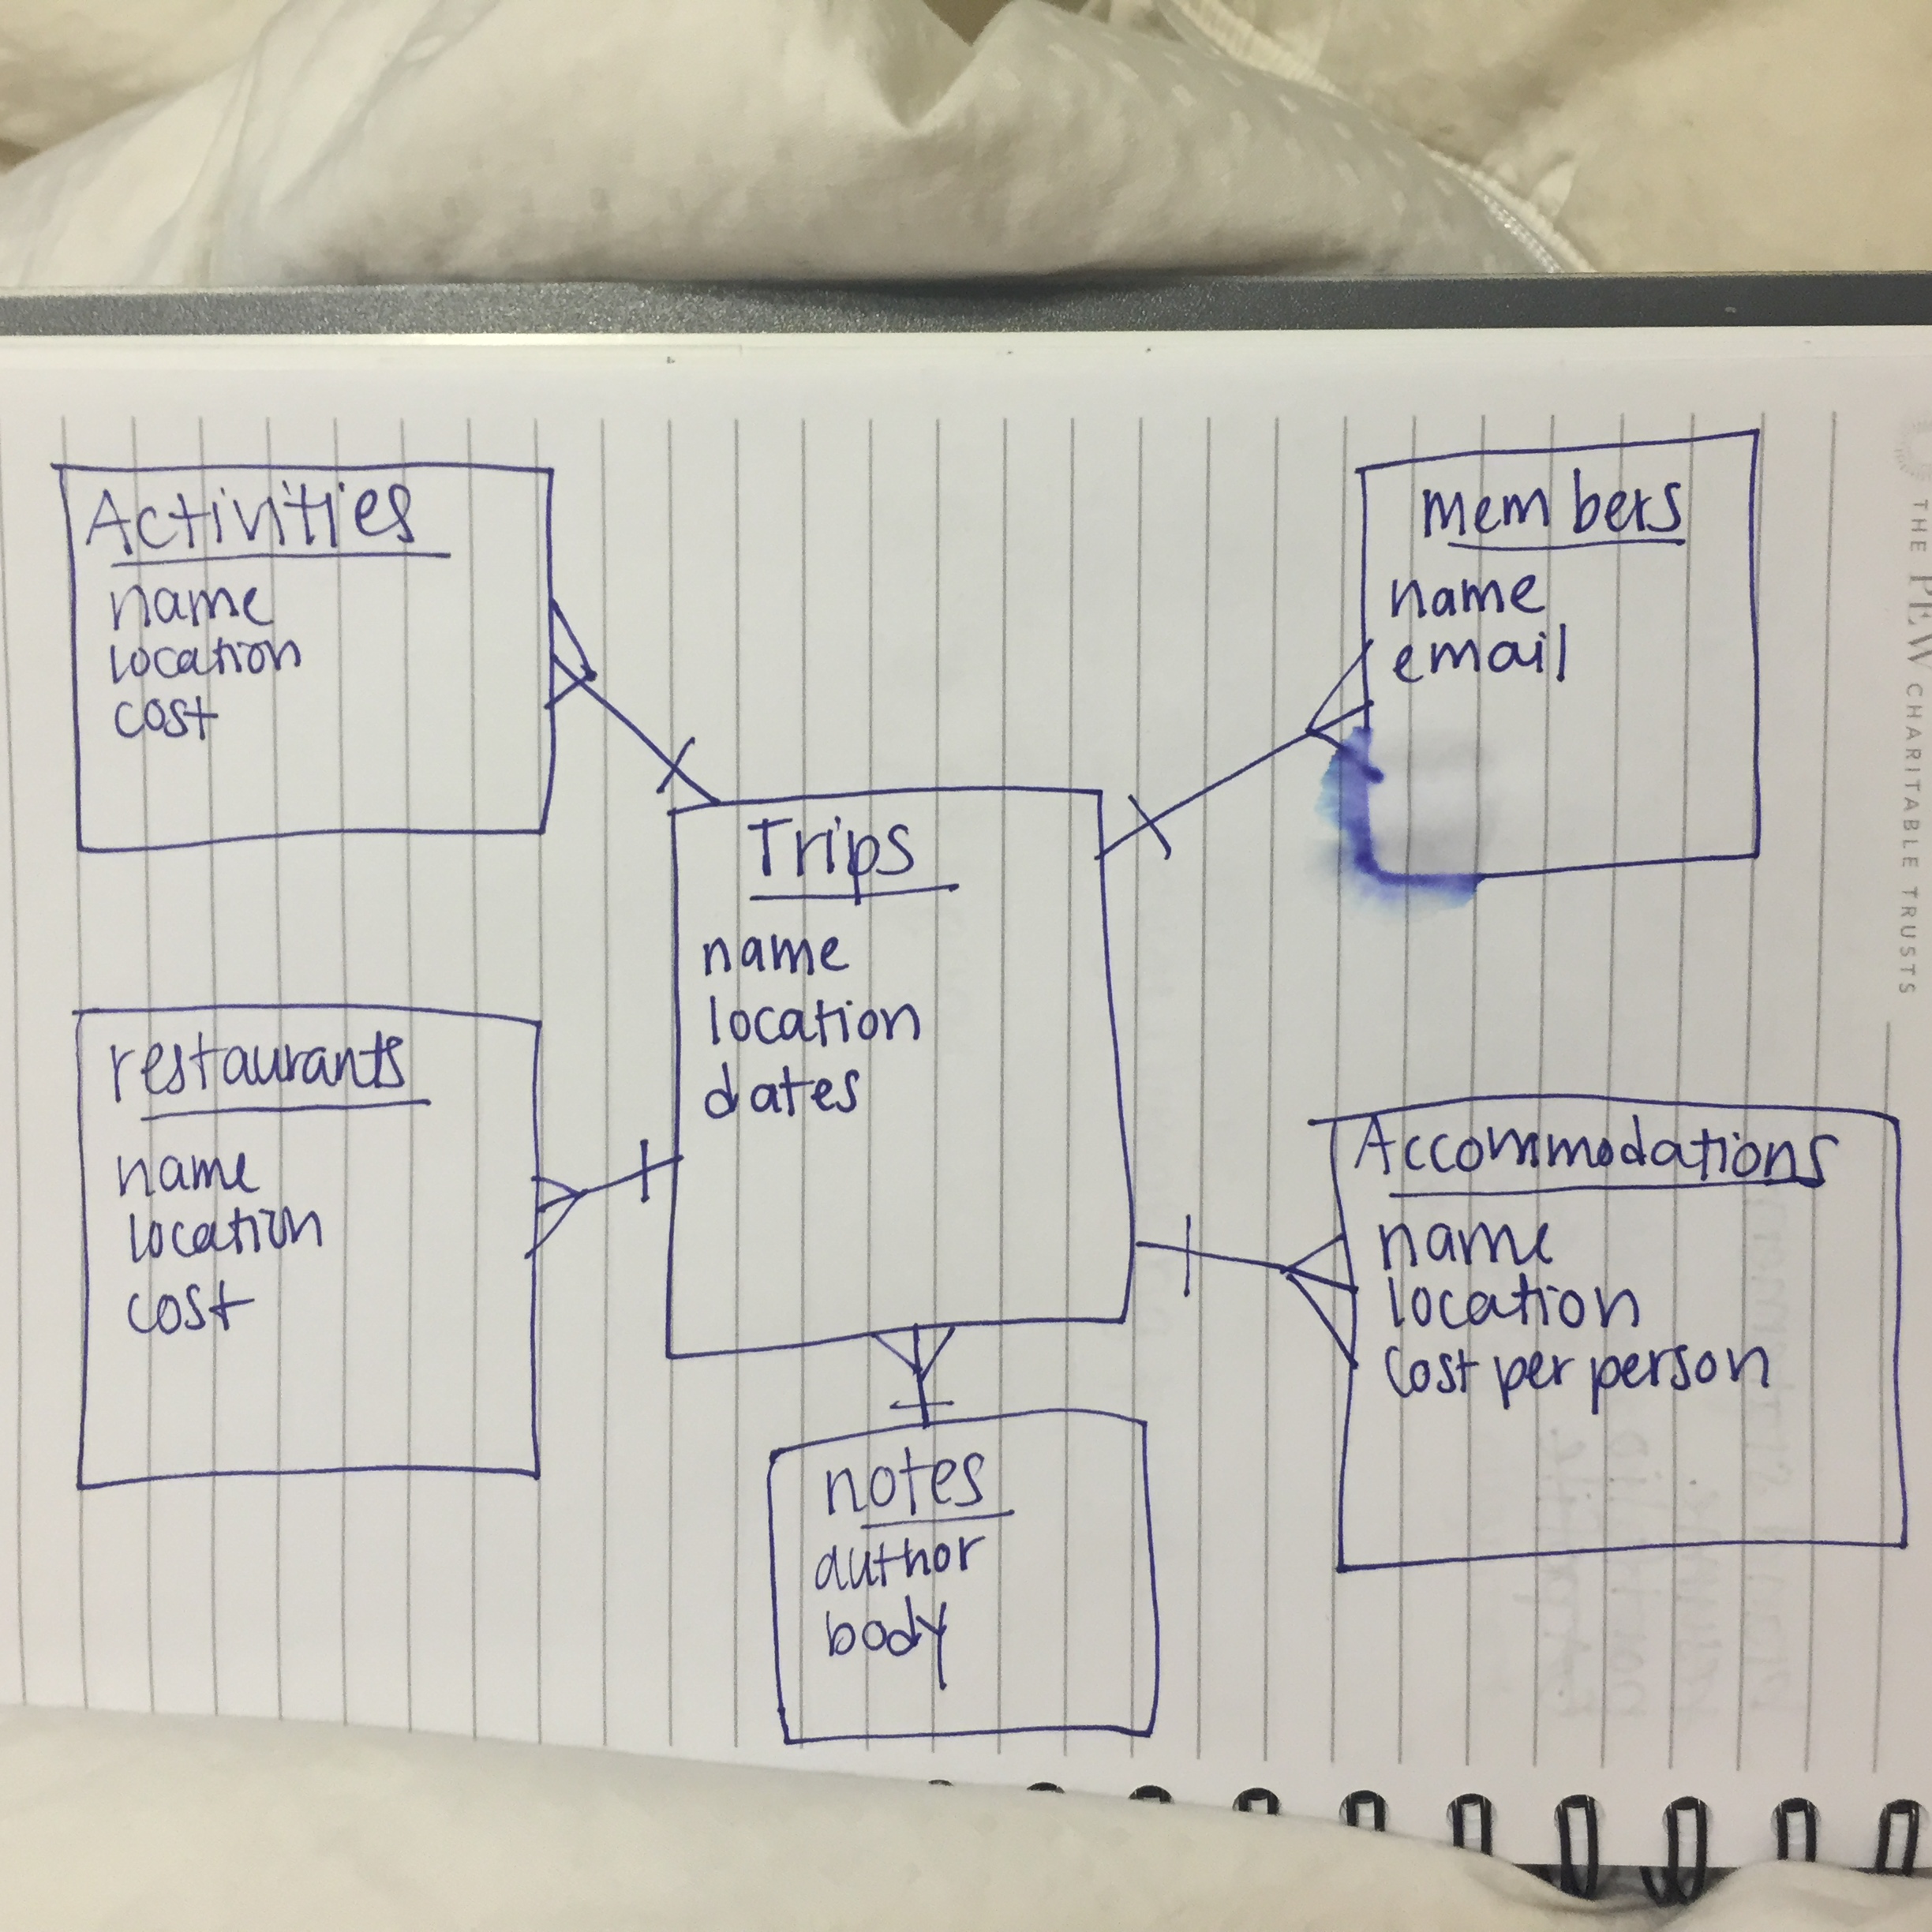 Activities
name
location
cost
members
name
email
Trips
name
location
dates
restaurants
name
location
cost
Accommodations
name
location
cost per person
notes
author
body
THE PEW CHARITABLE TRUSTS